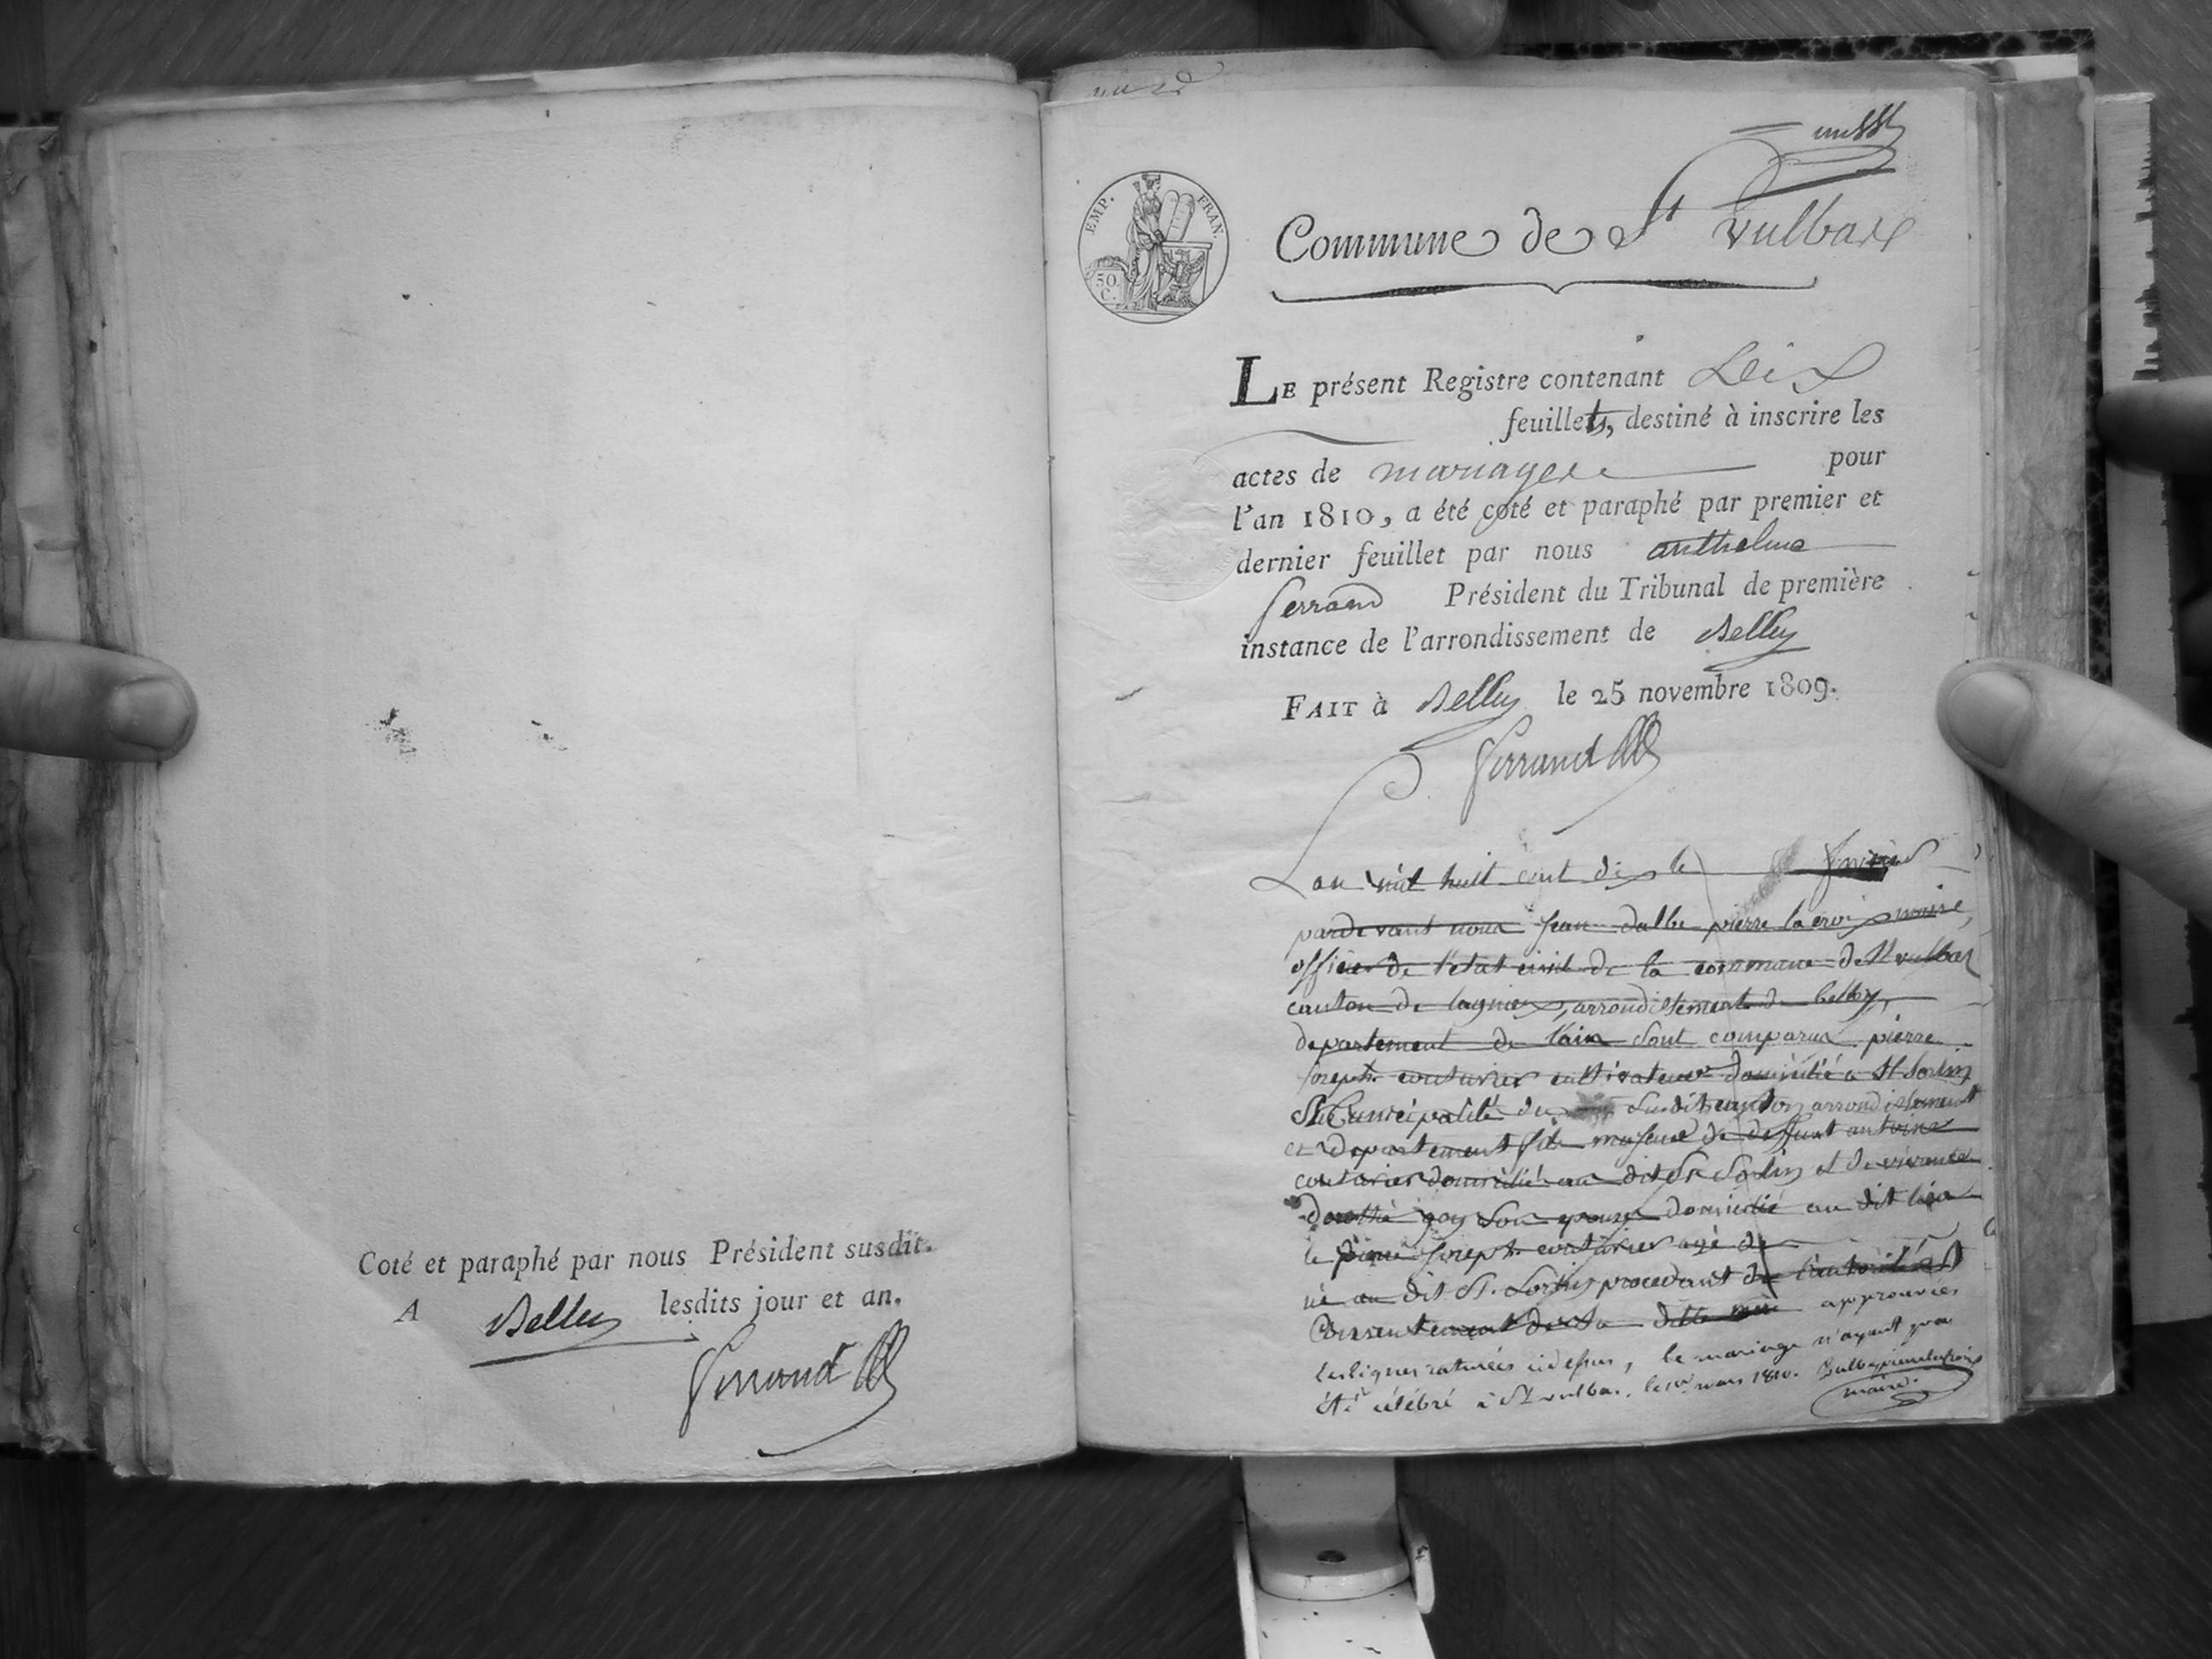 Coté et paraphé par nous Président susdit.
A Belley lesdits jour et an.
Ferrand
EMP. FRAN.
50.
C.
Commune de St Vulbas
LE présent Registre contenant
feuillets, destiné à inscrire les
actes de mariages pour
l'an 1810, a été coté et paraphé par premier et
dernier feuillet par nous anthelme
ferrand Président du Tribunal de première
instance de l'arrondissement de Belley
FAIT à Belley le 25 novembre 1809.
Ferrand
Lan mil huit cent dix le fevrier
pardevant nous jean dalbe pierre la croix maire,
officier de l'etat civil de la commune de St vulbas
canton de lagnieu, arrondissement de belley,
departement de l'ain sont comparus pierre
joseph couturier cultivateur domicilié à St Sorlin
municipalité du susdit canton arrondissement
et departement fils majeur de deffunt antoine
couturier domicilié au dit St Sorlin et de vivante
goy son epouse domicilié au dit lieu
le pierre joseph couturier agé de
né au dit St. Sorlin procedant de l'autorité et
Consentement de sa ditte mère approuvées
les lignes raturées cidessus, le mariage n'ayant pas
été célébré à St vulbas, le 1er mars 1810.
maire.